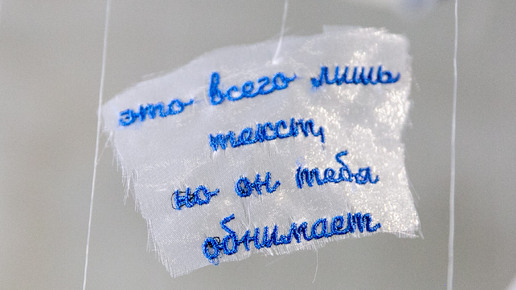 это всего лишь
текст,
но он тебя
обнимает